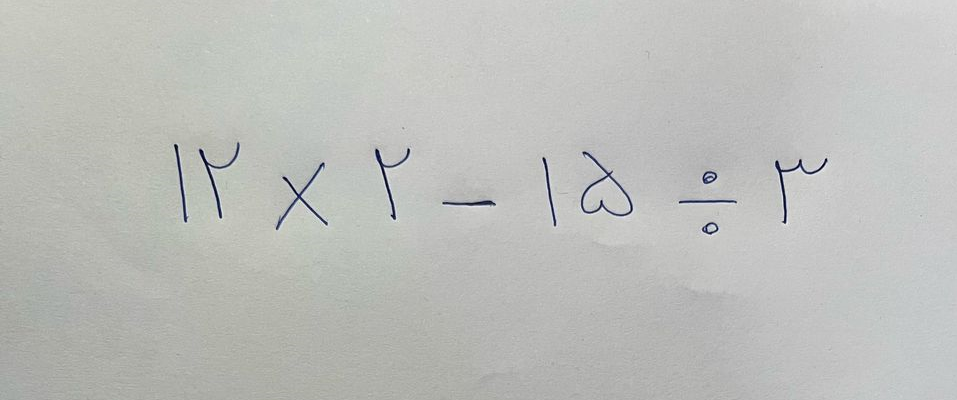 ۱۲ × ۲ − ۱۵ ÷ ۳